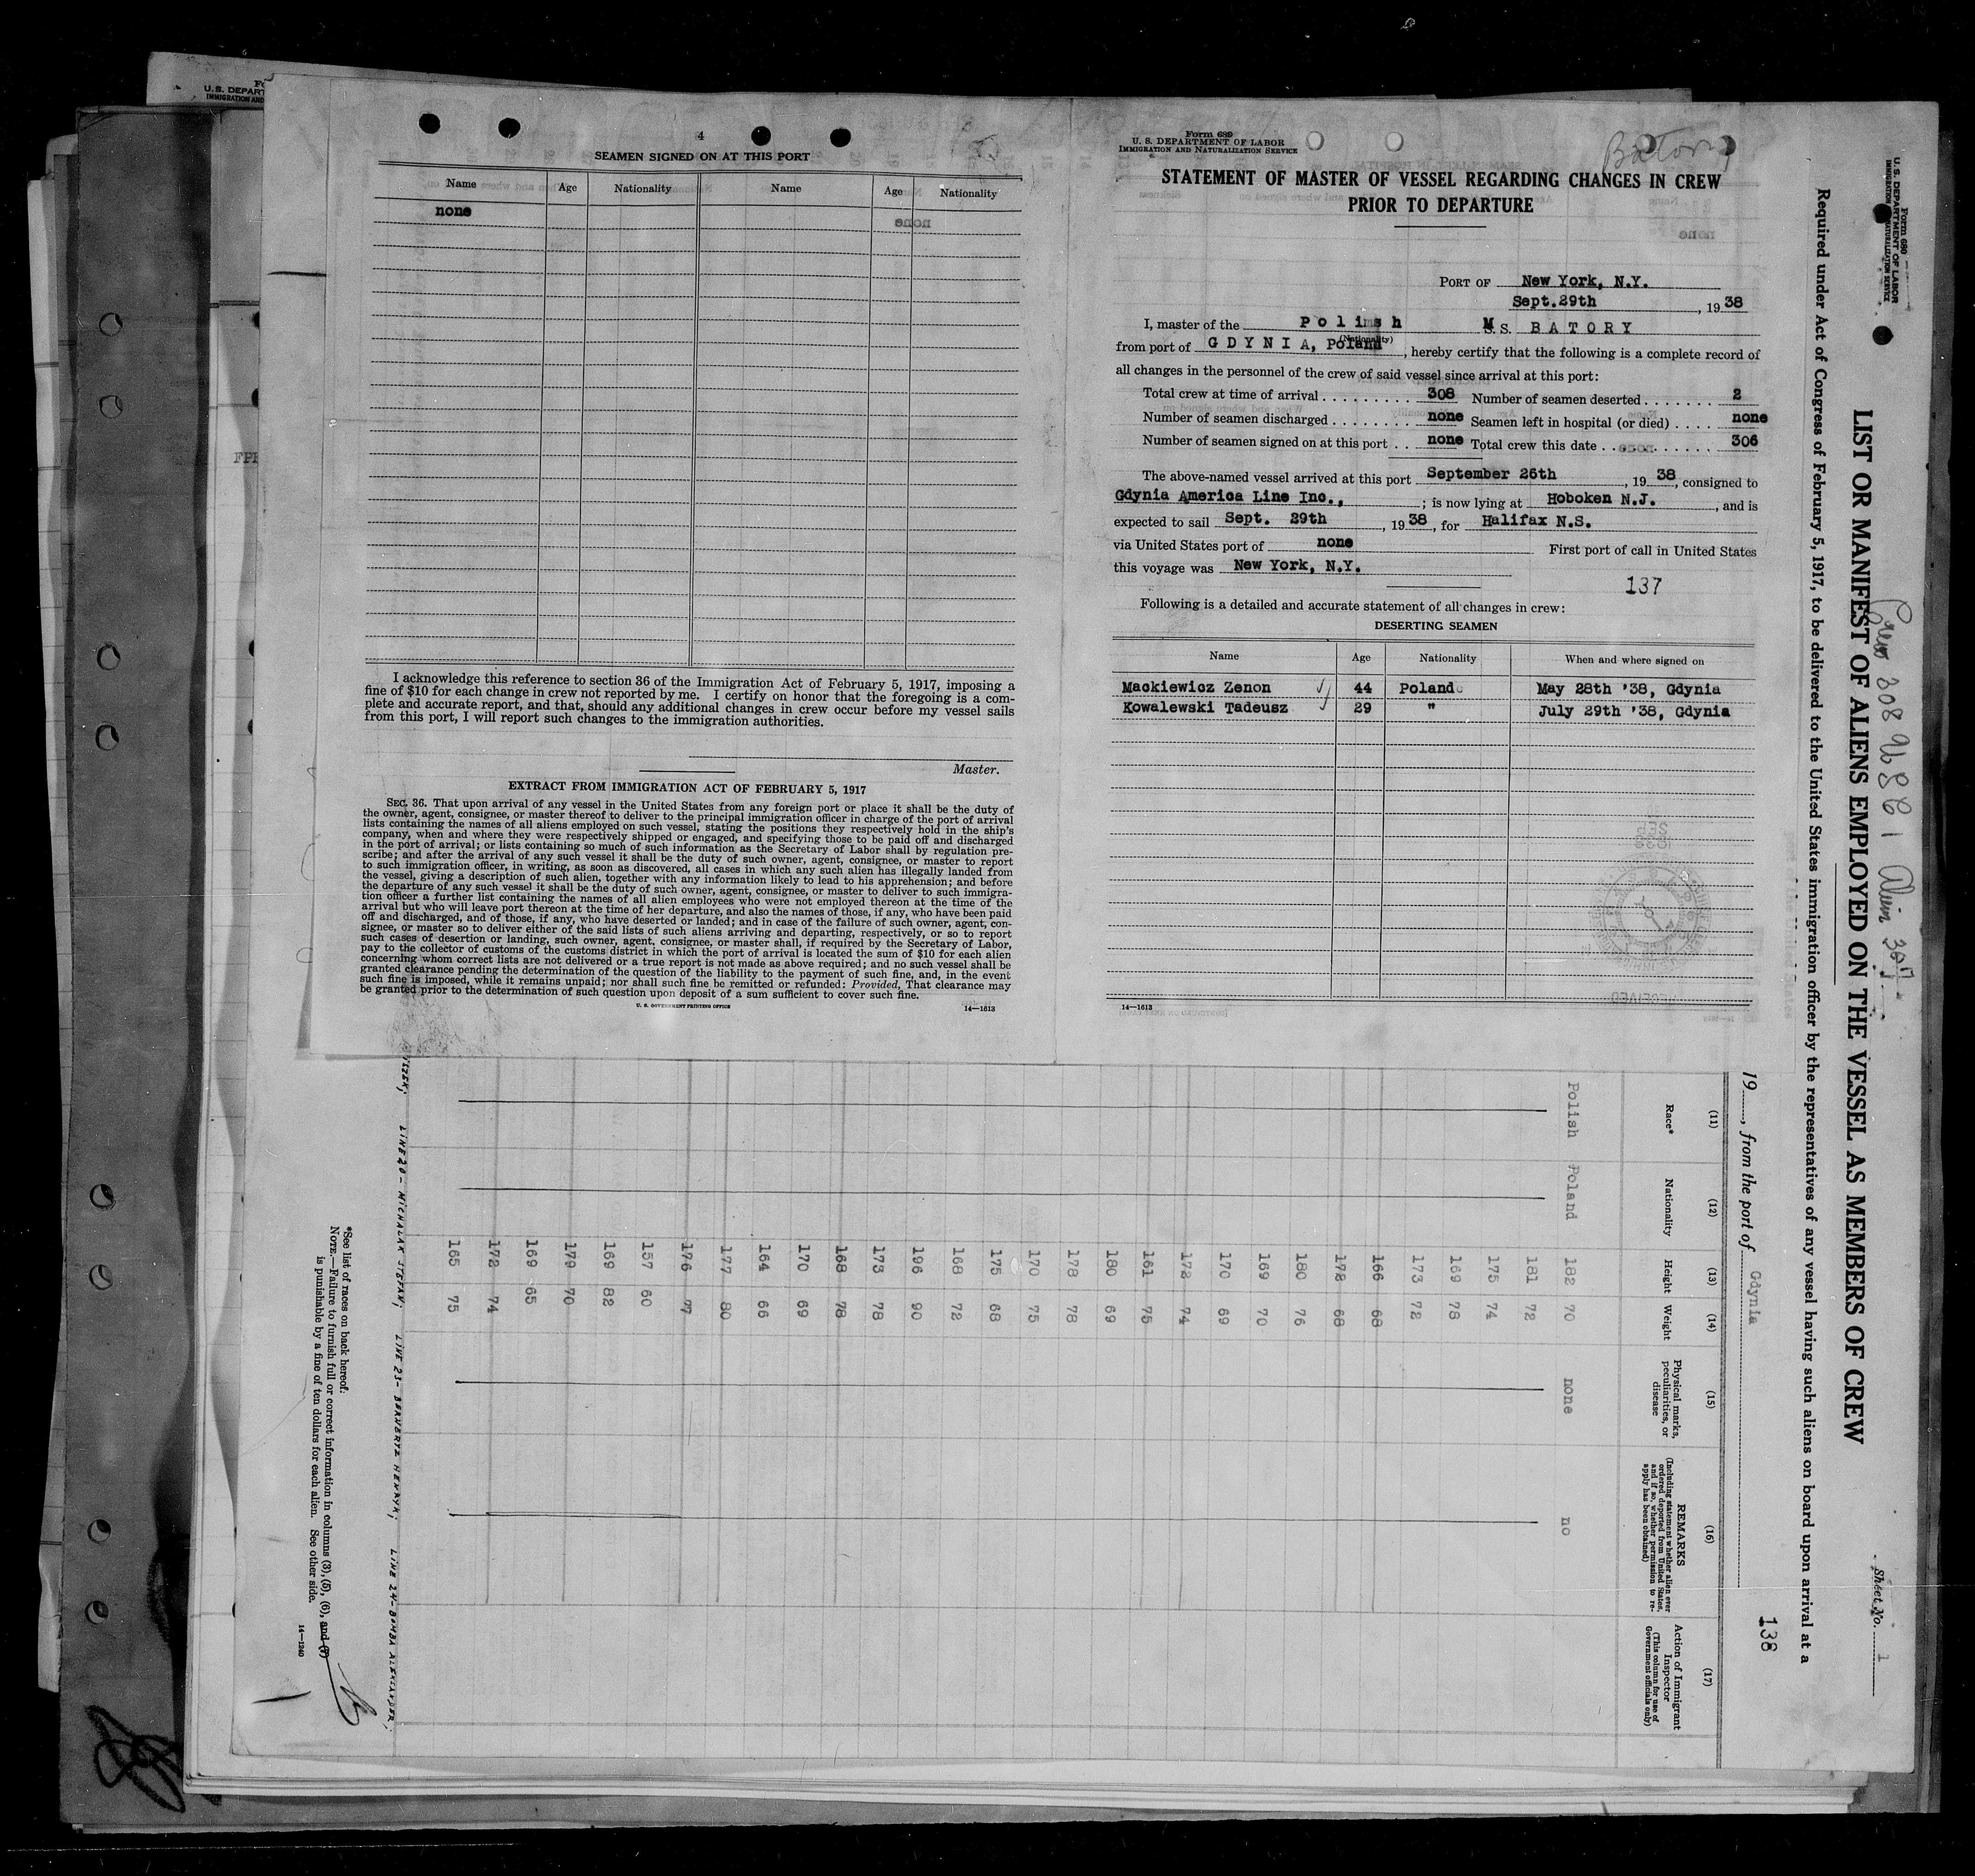 U.S. DEPART
IMMIGRATION AND
4
SEAMEN SIGNED ON AT THIS PORT
Name Age Nationality Name Age Nationality
none none
I acknowledge this reference to section 36 of the Immigration Act of February 5, 1917, imposing a
fine of $10 for each change in crew not reported by me. I certify on honor that the foregoing is a com-
plete and accurate report, and that, should any additional changes in crew occur before my vessel sails
from this port, I will report such changes to the immigration authorities.
Master.
EXTRACT FROM IMMIGRATION ACT OF FEBRUARY 5, 1917
SEC. 36. That upon arrival of any vessel in the United States from any foreign port or place it shall be the duty of
the owner, agent, consignee, or master thereof to deliver to the principal immigration officer in charge of the port of arrival
lists containing the names of all aliens employed on such vessel, stating the positions they respectively hold in the ship's
company, when and where they were respectively shipped or engaged, and specifying those to be paid off and discharged
in the port of arrival; or lists containing so much of such information as the Secretary of Labor shall by regulation pre-
scribe; and after the arrival of any such vessel it shall be the duty of such owner, agent, consignee, or master to report
to such immigration officer, in writing, as soon as discovered, all cases in which any such alien has illegally landed from
the vessel, giving a description of such alien, together with any information likely to lead to his apprehension; and before
the departure of any such vessel it shall be the duty of such owner, agent, consignee, or master to deliver to such immigra-
tion officer a further list containing the names of all alien employees who were not employed thereon at the time of the
arrival but who will leave port thereon at the time of her departure, and also the names of those, if any, who have been paid
off and discharged, and of those, if any, who have deserted or landed; and in case of the failure of such owner, agent, con-
signee, or master so to deliver either of the said lists of such aliens arriving and departing, respectively, or so to report
such cases of desertion or landing, such owner, agent, consignee, or master shall, if required by the Secretary of Labor,
pay to the collector of customs of the customs district in which the port of arrival is located the sum of $10 for each alien
concerning whom correct lists are not delivered or a true report is not made as above required; and no such vessel shall be
granted clearance pending the determination of the question of the liability to the payment of such fine, and, in the event
such fine is imposed, while it remains unpaid; nor shall such fine be remitted or refunded: Provided, That clearance may
be granted prior to the determination of such question upon deposit of a sum sufficient to cover such fine.
U. S. GOVERNMENT PRINTING OFFICE 14—1613
Form 689
U. S. DEPARTMENT OF LABOR
IMMIGRATION AND NATURALIZATION SERVICE
Batory
STATEMENT OF MASTER OF VESSEL REGARDING CHANGES IN CREW
PRIOR TO DEPARTURE
PORT OF New York, N.Y.
Sept.29th, 19 38
I, master of the Polish M S. BATORY
(Nationality)
from port of GDYNIA, Poland, hereby certify that the following is a complete record of
all changes in the personnel of the crew of said vessel since arrival at this port:
Total crew at time of arrival 308 Number of seamen deserted 2
Number of seamen discharged none Seamen left in hospital (or died) none
Number of seamen signed on at this port none Total crew this date 306
The above-named vessel arrived at this port September 26th, 19 38, consigned to
Gdynia America Line Inc., ; is now lying at Hoboken N.J., and is
expected to sail Sept. 29th, 19 38, for Halifax N.S.
via United States port of none First port of call in United States
this voyage was New York, N.Y.
137
Following is a detailed and accurate statement of all changes in crew:
DESERTING SEAMEN
Name Age Nationality When and where signed on
Mackiewicz Zenon 44 Poland May 28th '38, Gdynia
Kowalewski Tadeusz 29 " July 29th '38, Gdynia
14—1613
Form 680
U. S. DEPARTMENT OF LABOR
IMMIGRATION NATURALIZATION SERVICE
Crew 308 USC 1 Alien 307
Sheet No. 1
LIST OR MANIFEST OF ALIENS EMPLOYED ON THE VESSEL AS MEMBERS OF CREW
Required under Act of Congress of February 5, 1917, to be delivered to the United States immigration officer by the representatives of any vessel having such aliens on board upon arrival at a
138
19, from the port of Gdynia
(11) (12) (13) (14) (15) (16) (17)
Race* Nationality Height Weight Physical marks, peculiarities, or disease REMARKS (Including statement whether alien ever ordered deported from United States, and if so, whether permission to re-apply has been obtained) Action of Immigrant Inspector (This column for use of Government officials only)
Polish Poland 182 70 none no
181 72
175 74
169 78
173 72
166 68
178 68
180 76
169 70
170 69
172 74
161 75
180 69
178 78
170 75
175 68
168 72
196 90
173 78
168 78
170 69
164 66
177 80
176 77
157 60
169 82
179 70
169 65
172 74
165 75
LINE 20- MICHALAK STEFAN; LINE 23- BERNBRTZ HENRYK; LINE 24-BOMBA ALEKSANDER,
*See list of races on back hereof.
NOTE.—Failure to furnish full or correct information in columns (3), (5), (6), and (7)
is punishable by a fine of ten dollars for each alien. See other side.
14—1240